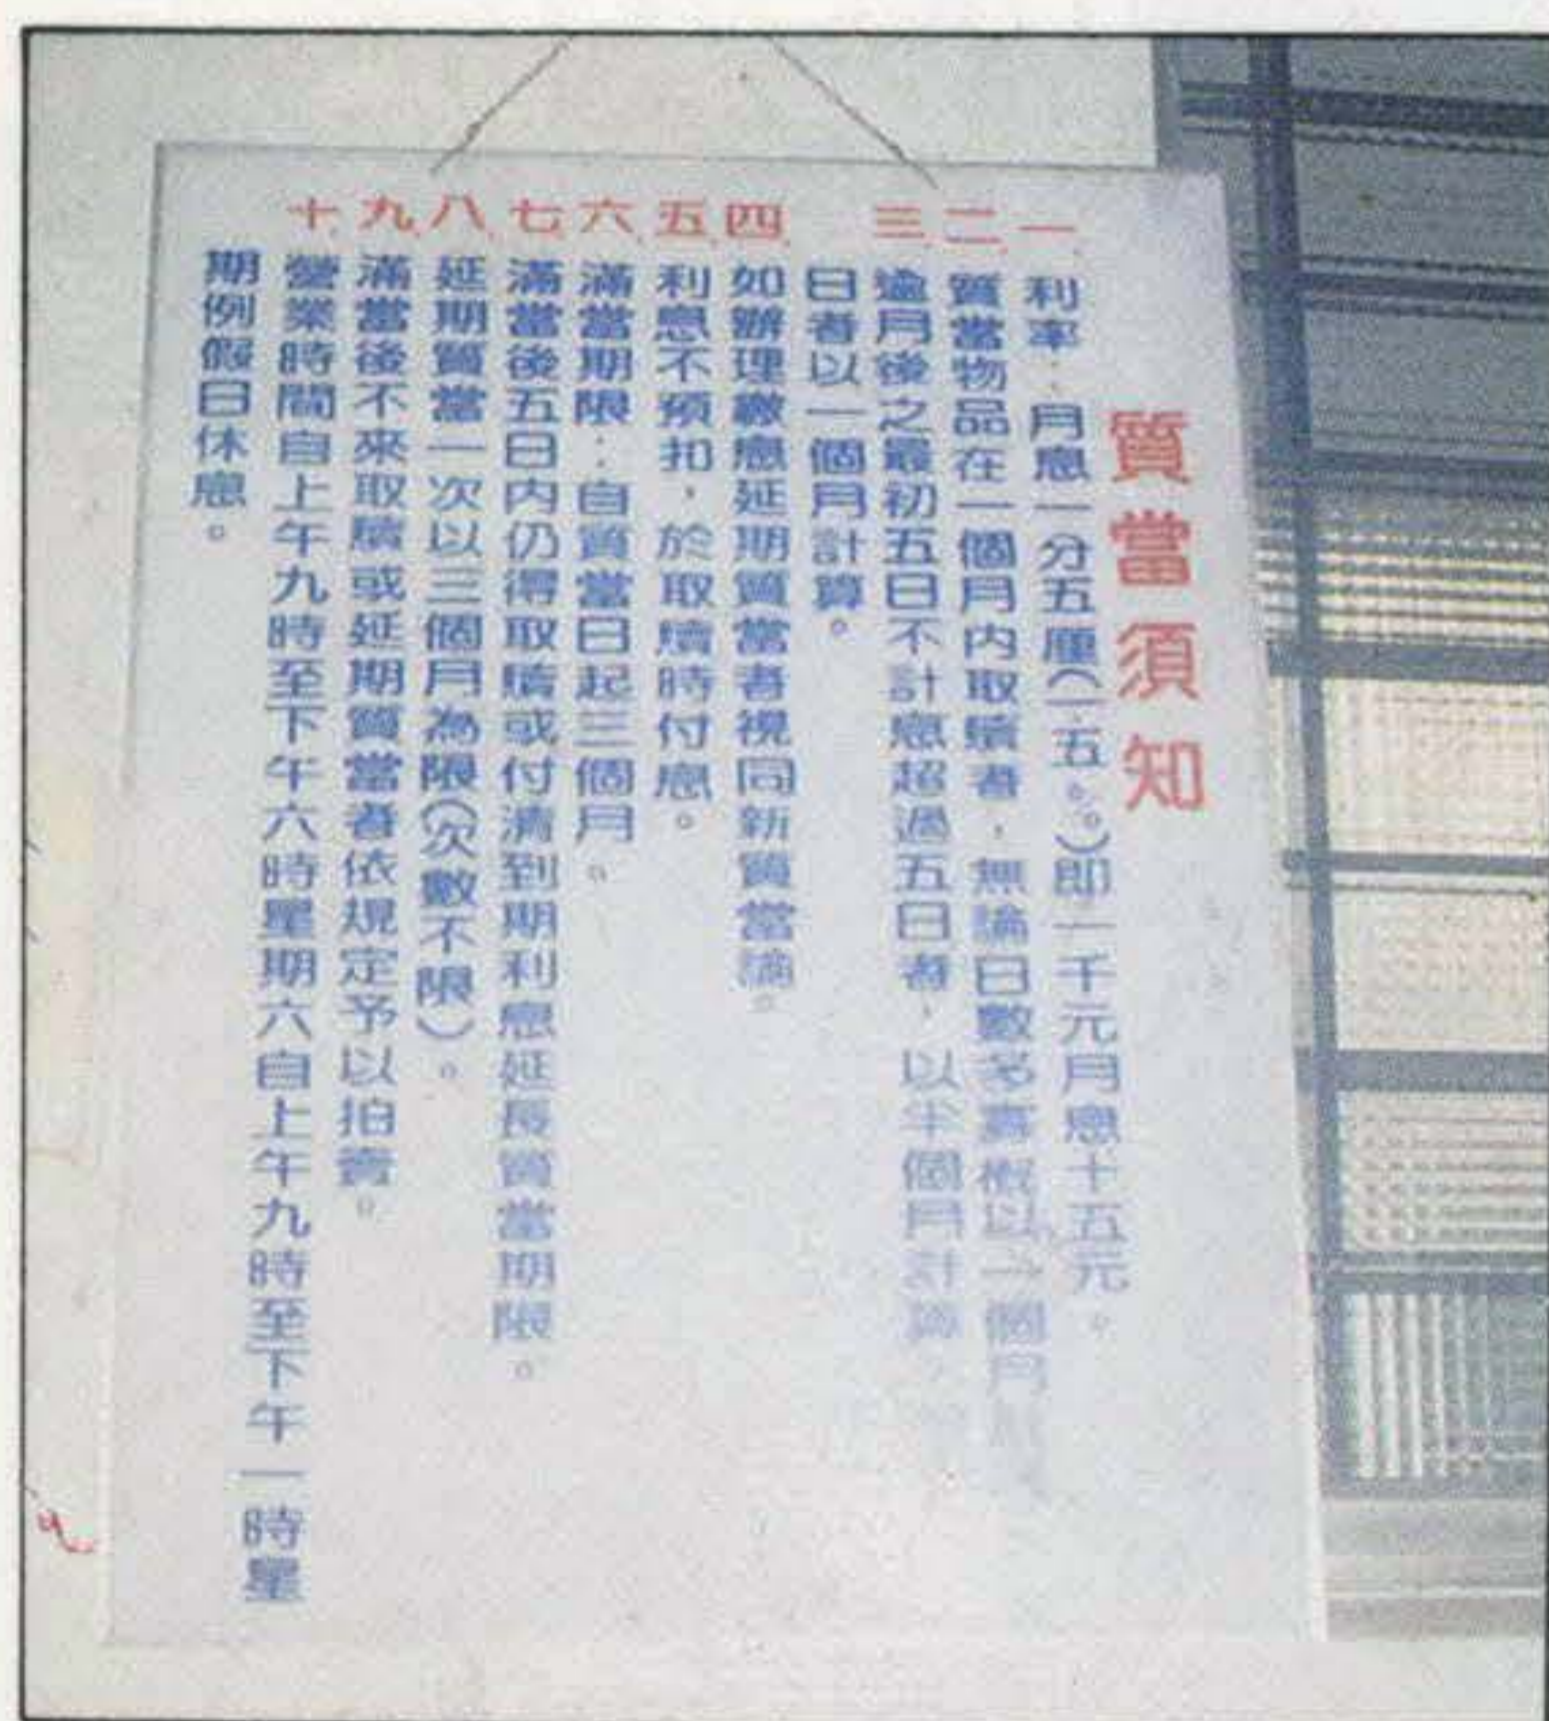 質當須知
一、利率：月息一分五厘（一.五%）即一千元月息十五元。
二、質當物品在一個月內取贖者，無論日數多寡概以一個月
三、逾月後之最初五日不計息超過五日者，以半個月計算，
日者以一個月計算。
四、如辦理繳息延期質當者視同新質當論。
五、利息不預扣，於取贖時付息。
六、滿當期限：自質當日起三個月。
七、滿當後五日內仍得取贖或付清到期利息延長質當期限。
八、延期質當一次以三個月為限（次數不限）。
九、滿當後不來取贖或延期質當者依規定予以拍賣。
十、營業時間自上午九時至下午六時星期六自上午九時至下午一時星
期例假日休息。